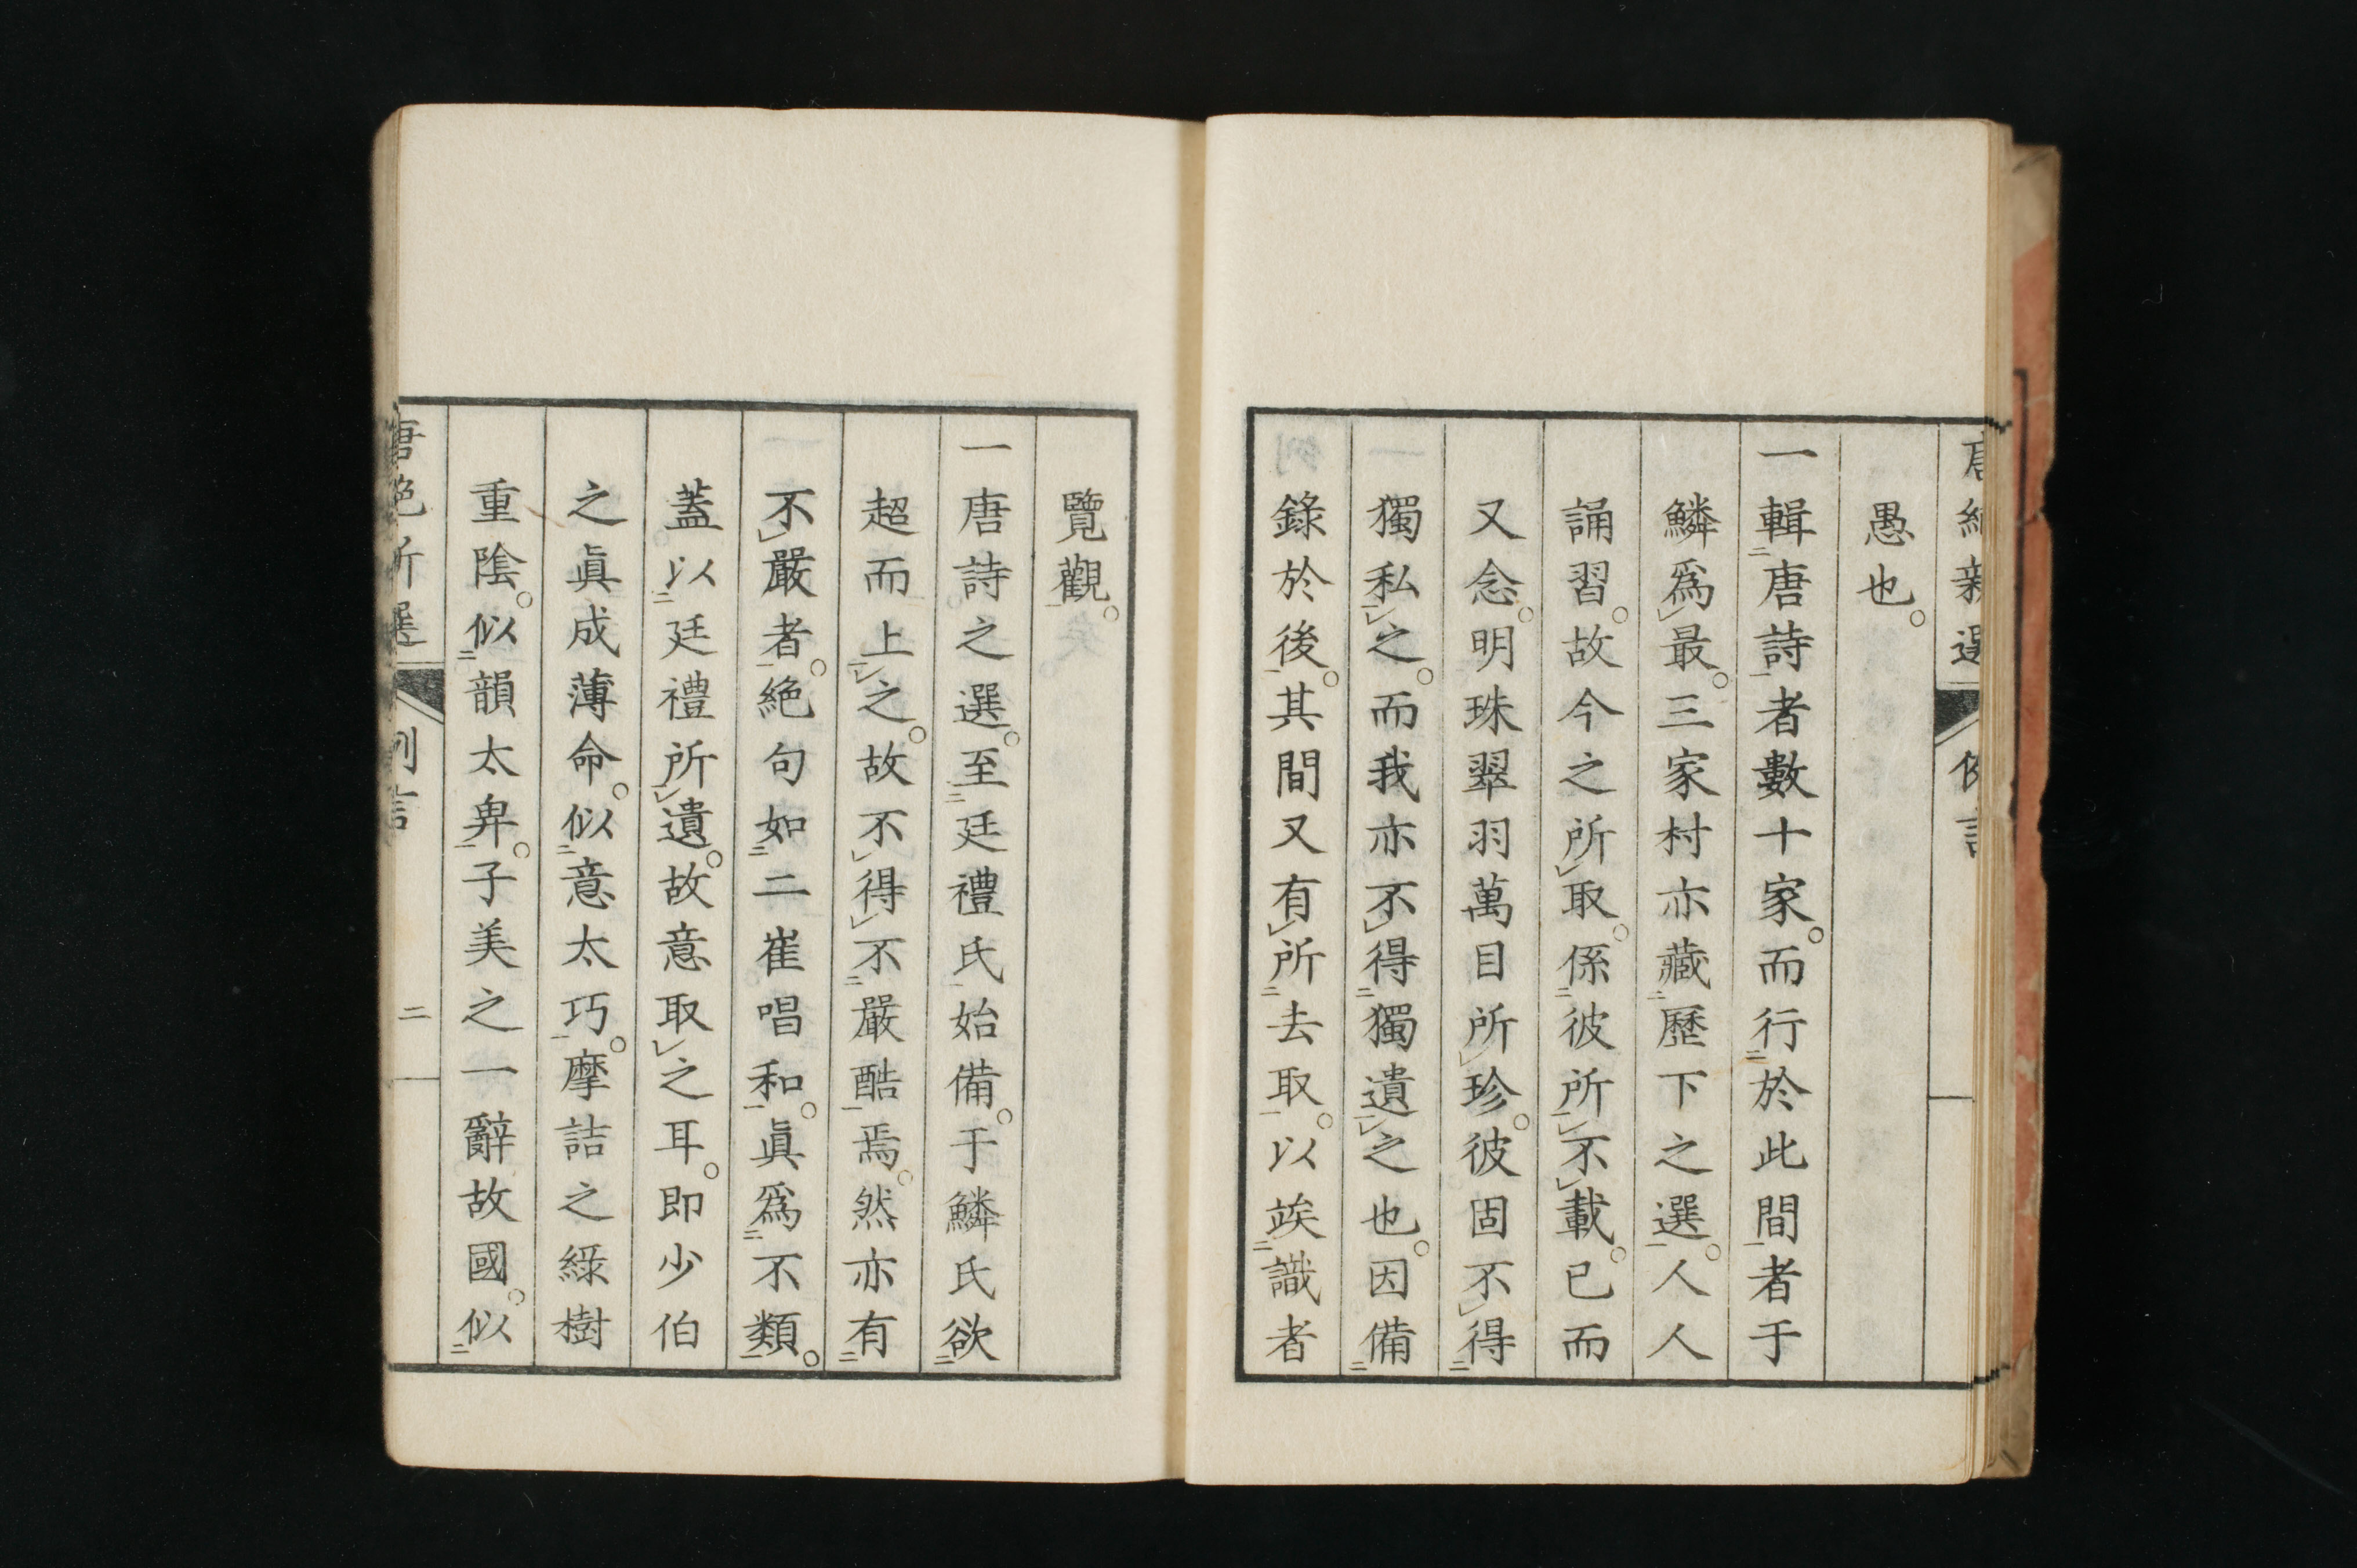 愚也。
一輯唐詩者數十家。而行於此間者于
鱗爲最。三家村亦藏歷下之選。人人
誦習。故今之所取。係彼所不載。已而
又念。明珠翠羽萬目所珍。彼固不得
獨私之。而我亦不得獨遺之也。因備
錄於後。其間又有所去取。以竢識者
覽觀。
一唐詩之選。至廷禮氏始備。于鱗氏欲
超而上之。故不得不嚴酷焉。然亦有
不嚴者。絕句如二崔唱和。眞爲不類。
蓋以廷禮所遺。故意取之耳。即少伯
之眞成薄命。似意太巧。摩詰之綠樹
重陰。似韻太卑。子美之一辭故國。似
二